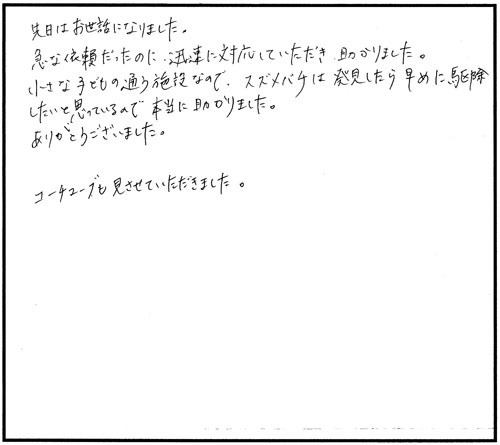 先日はお世話になりました。
急な依頼だったのに、迅速に対応していただき、助かりました。
小さな子どもの通う施設なので、スズメバチは発見したら早めに駆除
したいと思っているので本当に助かりました。
ありがとうございました。
ユーチューブも見させていただきました。